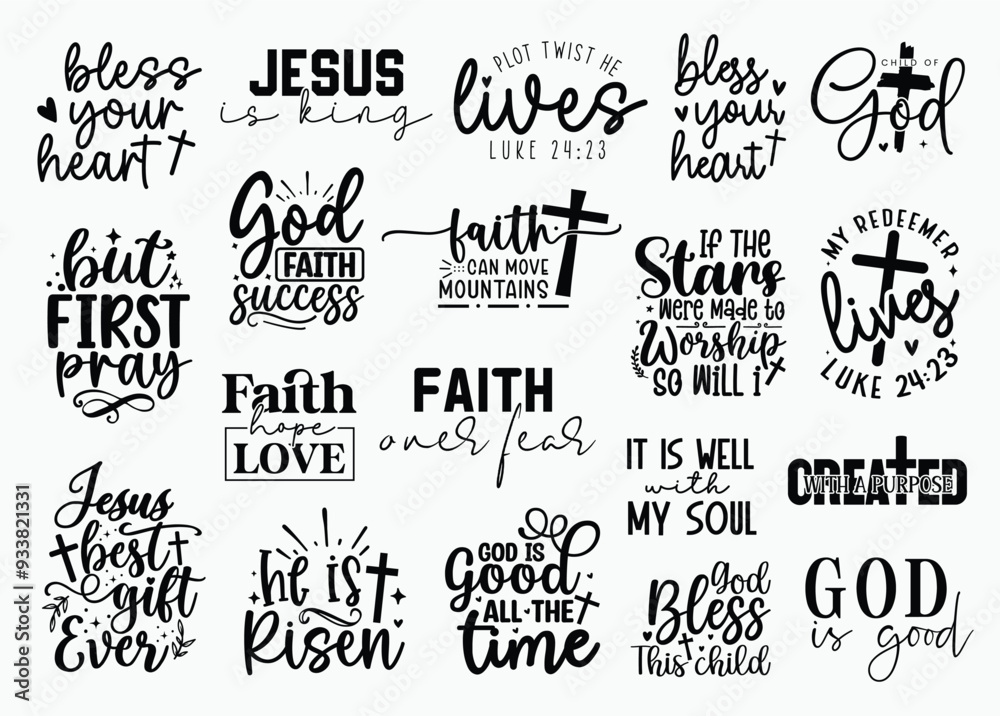 bless
your
heart
JESUS
is king
PLOT TWIST HE
lives
LUKE 24:23
bless
your
heart
CHILD OF
God
but
FIRST
pray
God
FAITH
success
faith
CAN MOVE
MOUNTAINS
If THE
Stars
Were MADE to
Worship
SO WiLL i
MY REDEEMER
lives
LUKE 24:23
Faith
hope
LOVE
FAITH
over fear
IT IS WELL
with
MY SOUL
CREATED
WITH A PURPOSE
Jesus
best
gift
Ever
he is
Risen
GOD IS
Good
ALL THE
time
God
Bless
This child
GOD
is good
Adobe Stock | #933821331